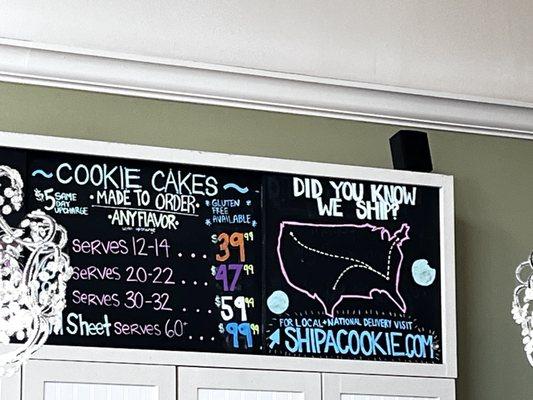 ~ COOKIE CAKES ~
$5 SAME DAY UPCHARGE
• MADE TO ORDER •
• ANY FLAVOR •
GLUTEN FREE AVAILABLE
serves 12-14 . . . $39.99
serves 20-22 . . . $47.99
serves 30-32 . . . $59.99
Sheet serves 60+ . . . $99.99
DID YOU KNOW
WE SHIP?
FOR LOCAL + NATIONAL DELIVERY VISIT
SHIPACOOKIE.COM